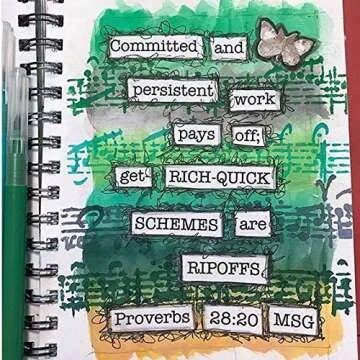 Committed and
persistent work
pays off;
get RICH-QUICK
SCHEMES are
RIPOFFS.
Proverbs 28:20 MSG